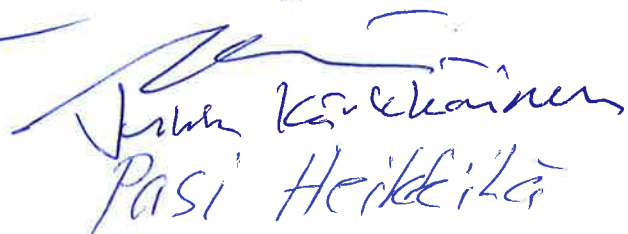 Kärkkäinen
Pasi Heikkilä